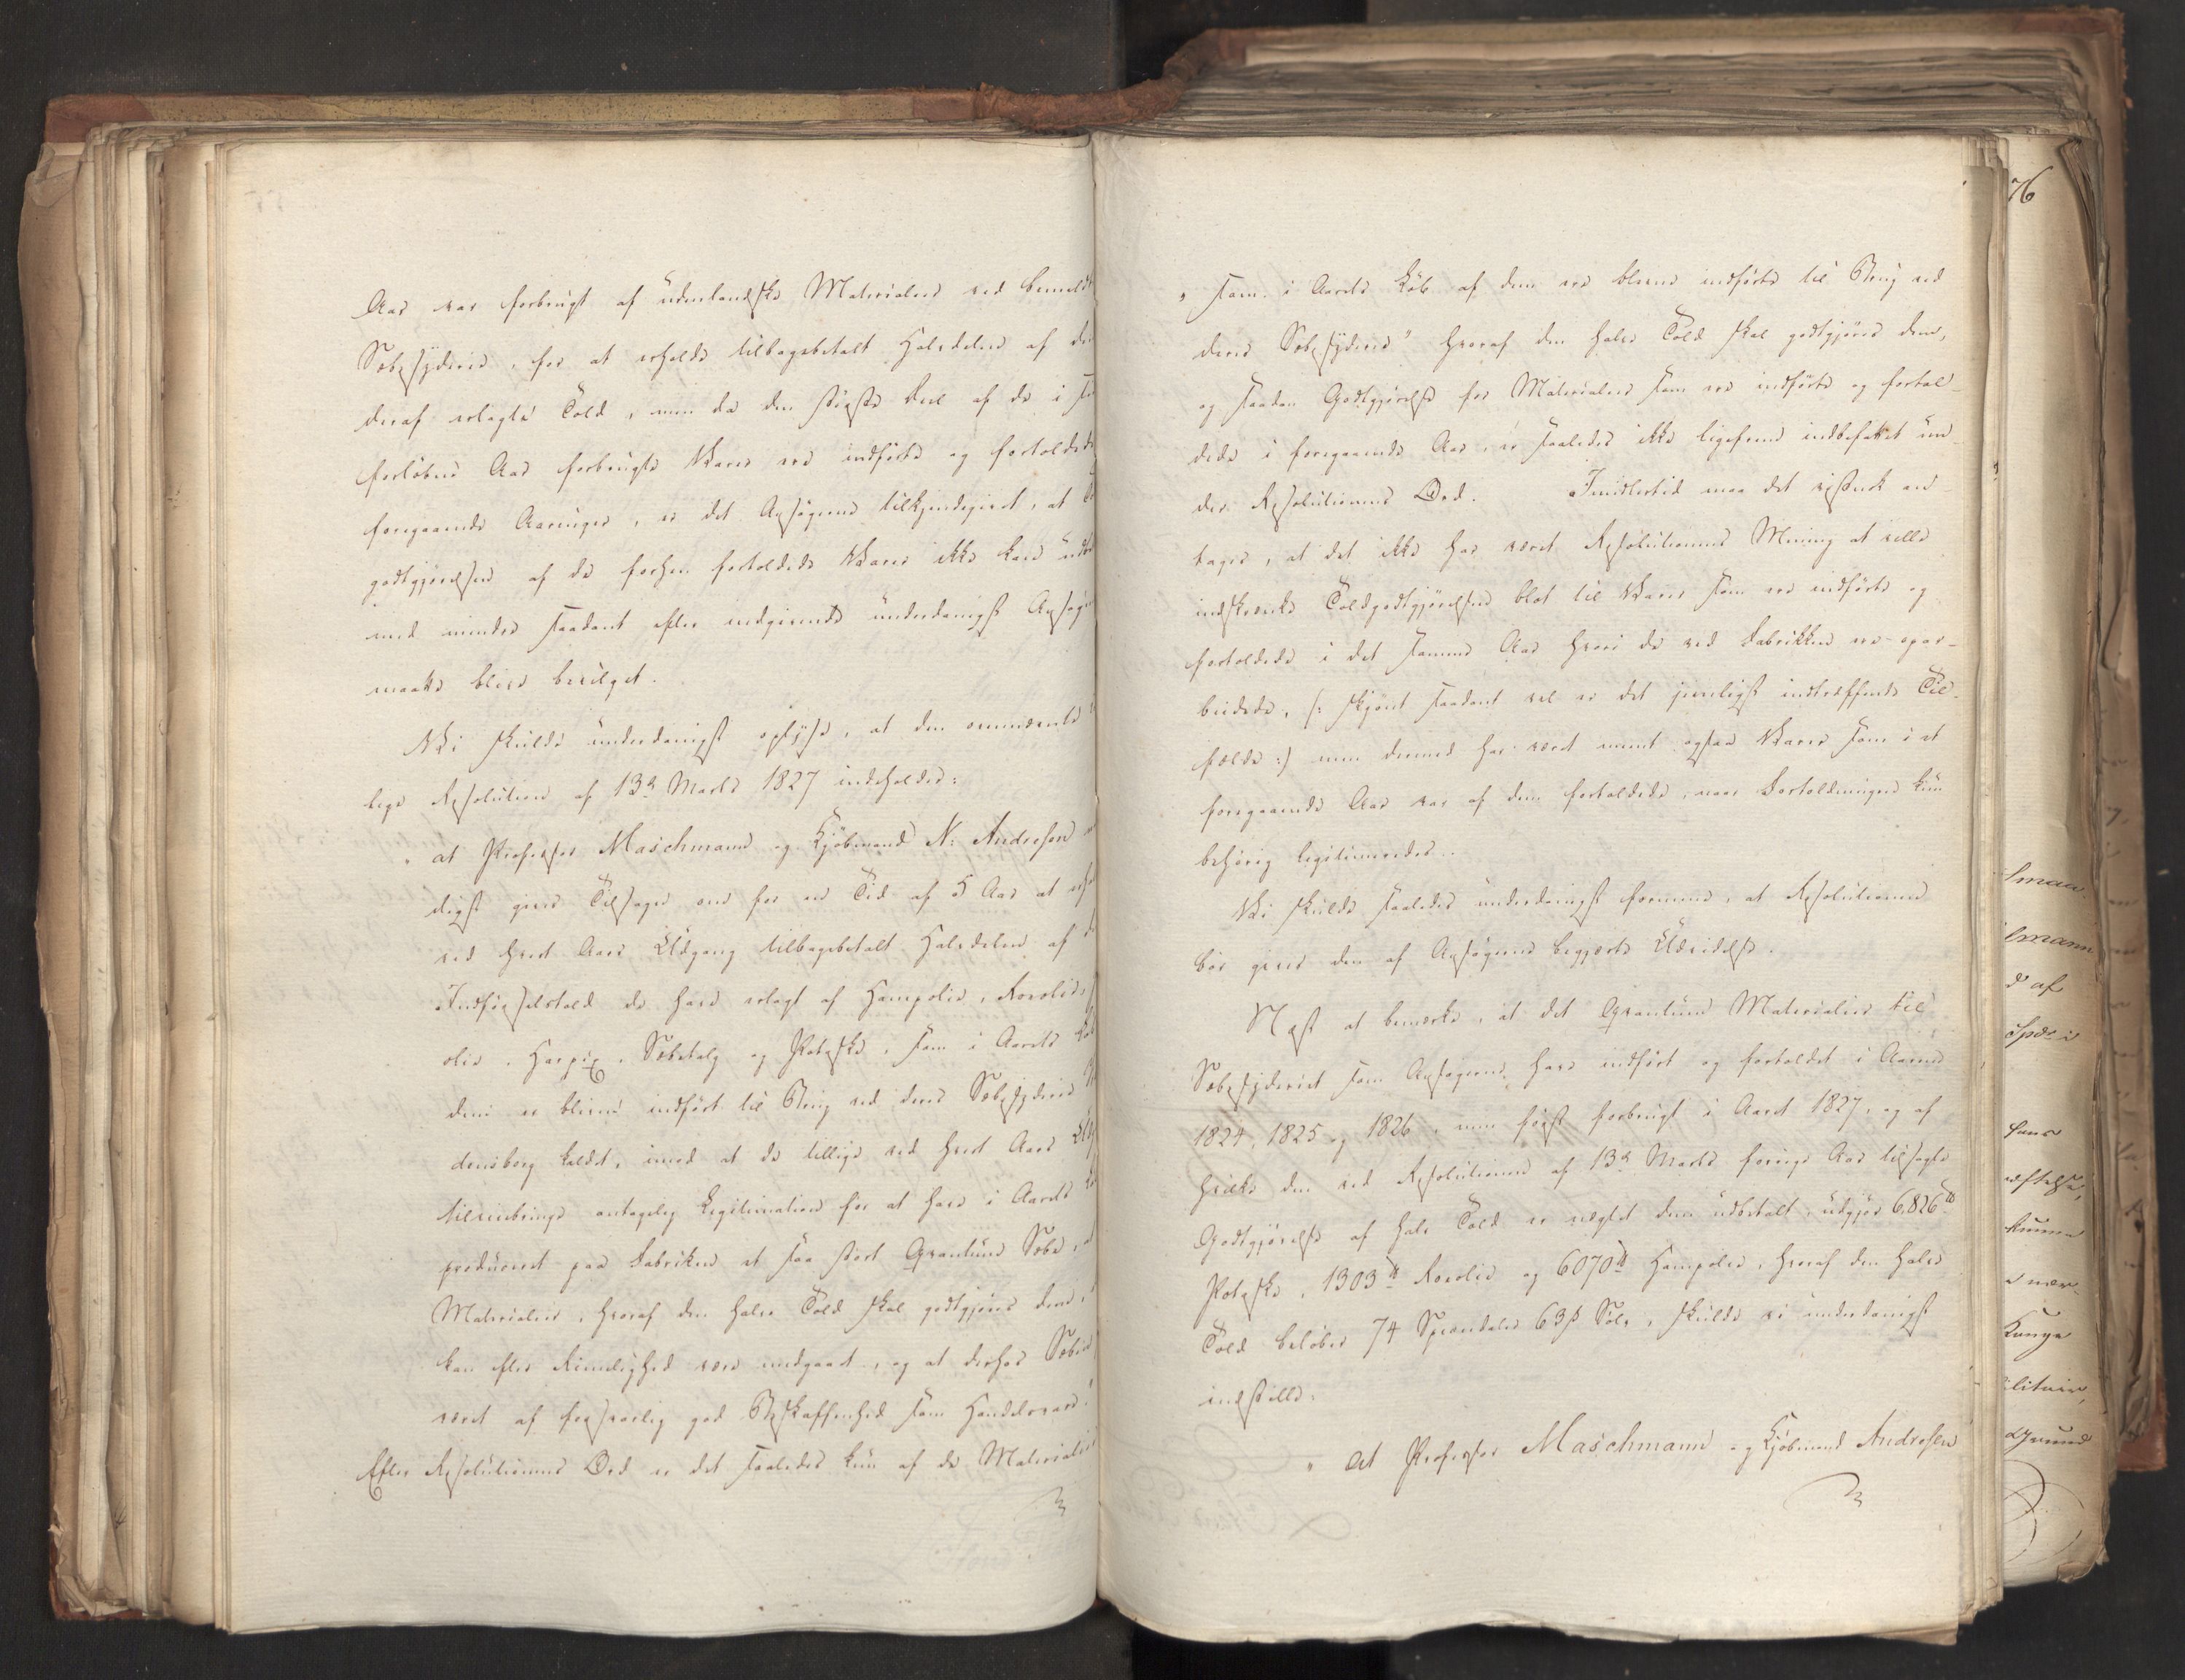 Aar var forbrugt af udenlandske Materialier ved bemeldte
Sæbesyderie, for at erholde tilbagebetalt Halvdelen af den
deraf erlagte Told, men da den største Deel af de i sidst
forløbne Aar forbrugte Varer ere indførte og fortoldede
foregaaende Aaringer, er det Ansøgerne tilkjendegivet, at
godtgjørelsen af de forhen fortoldede Varer ikke kan
med mindre saadant efter nedgivende underdanigst Ansøgn
maatte blive bevilget.
Vi skulde underdanigst oplyse, at den ommeldte
lige Resolution af 13de Marts 1827 indeholder:
„at Professor Maschmann og Kjøbmand N: Andresen
digst gives Tilsagn om for en Tid af 5 Aar at
ved hvert Aars Udgang tilbagebetalt Halvdelen af
Indførselstold de have erlagt af Hampolie, Roeolie,
olie, Harpix, Sæbetalg og Potaske, som i Aarets Løb
dem er bleven indført til Brug ved deres Sæbesyderie
densborg kaldet, imod at de tillige ved hvert Aars
tilveiebringe antagelig Legitimation for at have i Aarets
produceret paa Fabriken et saa stort Qvantum Sæbe,
Materialier, hvoraf den halve Told skal godtgjøres dem,
kan efter Rimelighed være medgaaet, og at derhos Sæben
været af forsvarlig god Beskaffenhed som Handelsvare.
Efter Resolutionens Ord er det saaledes kun af de Materialier
„som i Aarets Løb af dem ere blevne indførte til Brug ved
deres Sæbesyderie" hvoraf den halve Told skal godtgjøres dem,
og saadan Godtgjørelse for Materialier som ere indførte og fortol-
dede i foregaaende Aar, er saaledes ikke ligefrem indbefattet un-
der Resolutionens Ord. Imidlertid maa det vistnok an-
tages, at det ikke har været Resolutionens Mening at ville
indskrænke Toldgodtgjørelsen blot til Varer som ere indførte og
fortoldede i det samme Aar hvori de ved Fabrikken ere opar-
beidede, /: skjønt saadant vel er det jevnligst indtræffende Til-
fælde :/ men dermed har været meent ogsaa Varer som i et
foregaaende Aar var af dem fortoldede, naar Fortoldningen kun
behørig legitimeredes.
Vi skulde saaledes underdanigst formene, at Resolutionen
bør gives den af Ansøgerne begjærte Udvidelse.
Næst at bemærke, at det Qvantum Materialier til
Sæbesyderiet som Ansøgerne have indført og fortoldet i Aarene
1824, 1825 og 1826, men først forbrugt i Aaret 1827, og af
hvilke den ved Resolutionen af 13de Marts forrige Aar tilsagte
Godtgjørelse af halv Told er nægtet dem udbetalt, udgjør 6,826 ℔
Potaske, 1303 ℔ Roeolie og 6070 ℔ Hampolie, hvoraf den halve
Told beløber 74 Speciedaler 63 ß Sølv, skulde vi underdanigst
indstille:
„At Professor Maschmann og Kjøbmand Andresen
76